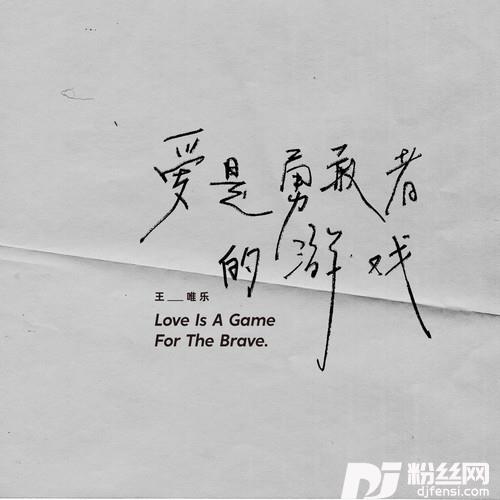 爱是勇敢者
的游戏
王__唯乐
Love Is A Game
For The Brave.
DJ 粉丝网
djfensi.com